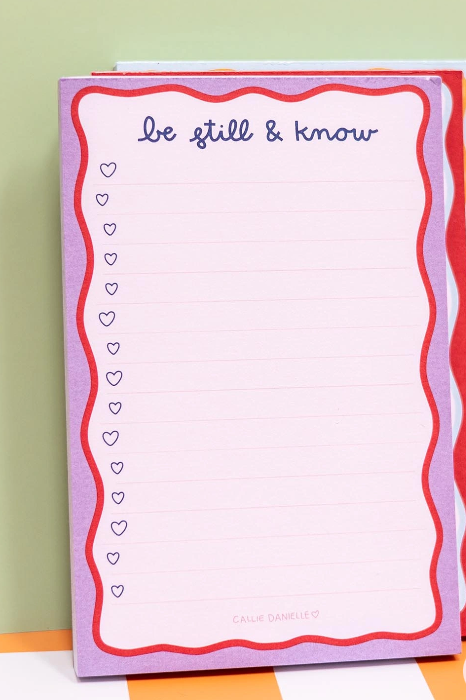 be still & know
CALLIE DANIELLE♡